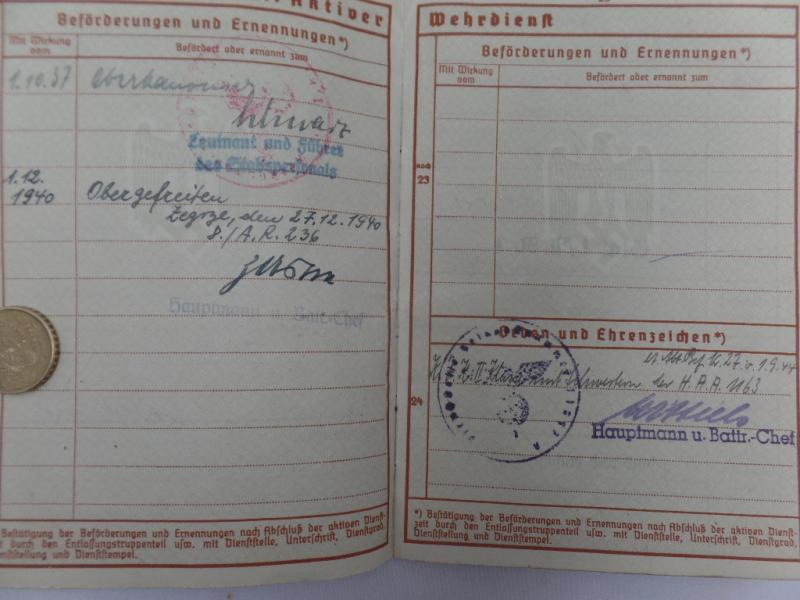 Aktiver
Beförderungen und Ernennungen*)
Mit Wirkung
vom
Befördert oder ernannt zum
1.10.37 Oberkanonier
Leutnant und Führer
des Stabspersonals
1.12.
1940 Obergefreiten
den 27.12.1940
8./A.R.236
Hauptmann u. Battr.-Chef
Bestätigung der Beförderungen und Ernennungen nach Abschluß der aktiven Dienst-
zeit durch den Entlassungstruppenteil usw. mit Dienststelle, Unterschrift, Dienstgrad,
Dienststellung und Dienststempel.
Wehrdienst
Beförderungen und Ernennungen*)
Mit Wirkung
vom
Befördert oder ernannt zum
noch
23
Orden und Ehrenzeichen*)
v. 1.9.44
II. Klasse mit Schwertern der H.A.A. 1163
24
Hauptmann u. Battr.-Chef
*) Bestätigung der Beförderungen und Ernennungen nach Abschluß der aktiven Dienst-
zeit durch den Entlassungstruppenteil usw. mit Dienststelle, Unterschrift, Dienstgrad,
Dienststellung und Dienststempel.